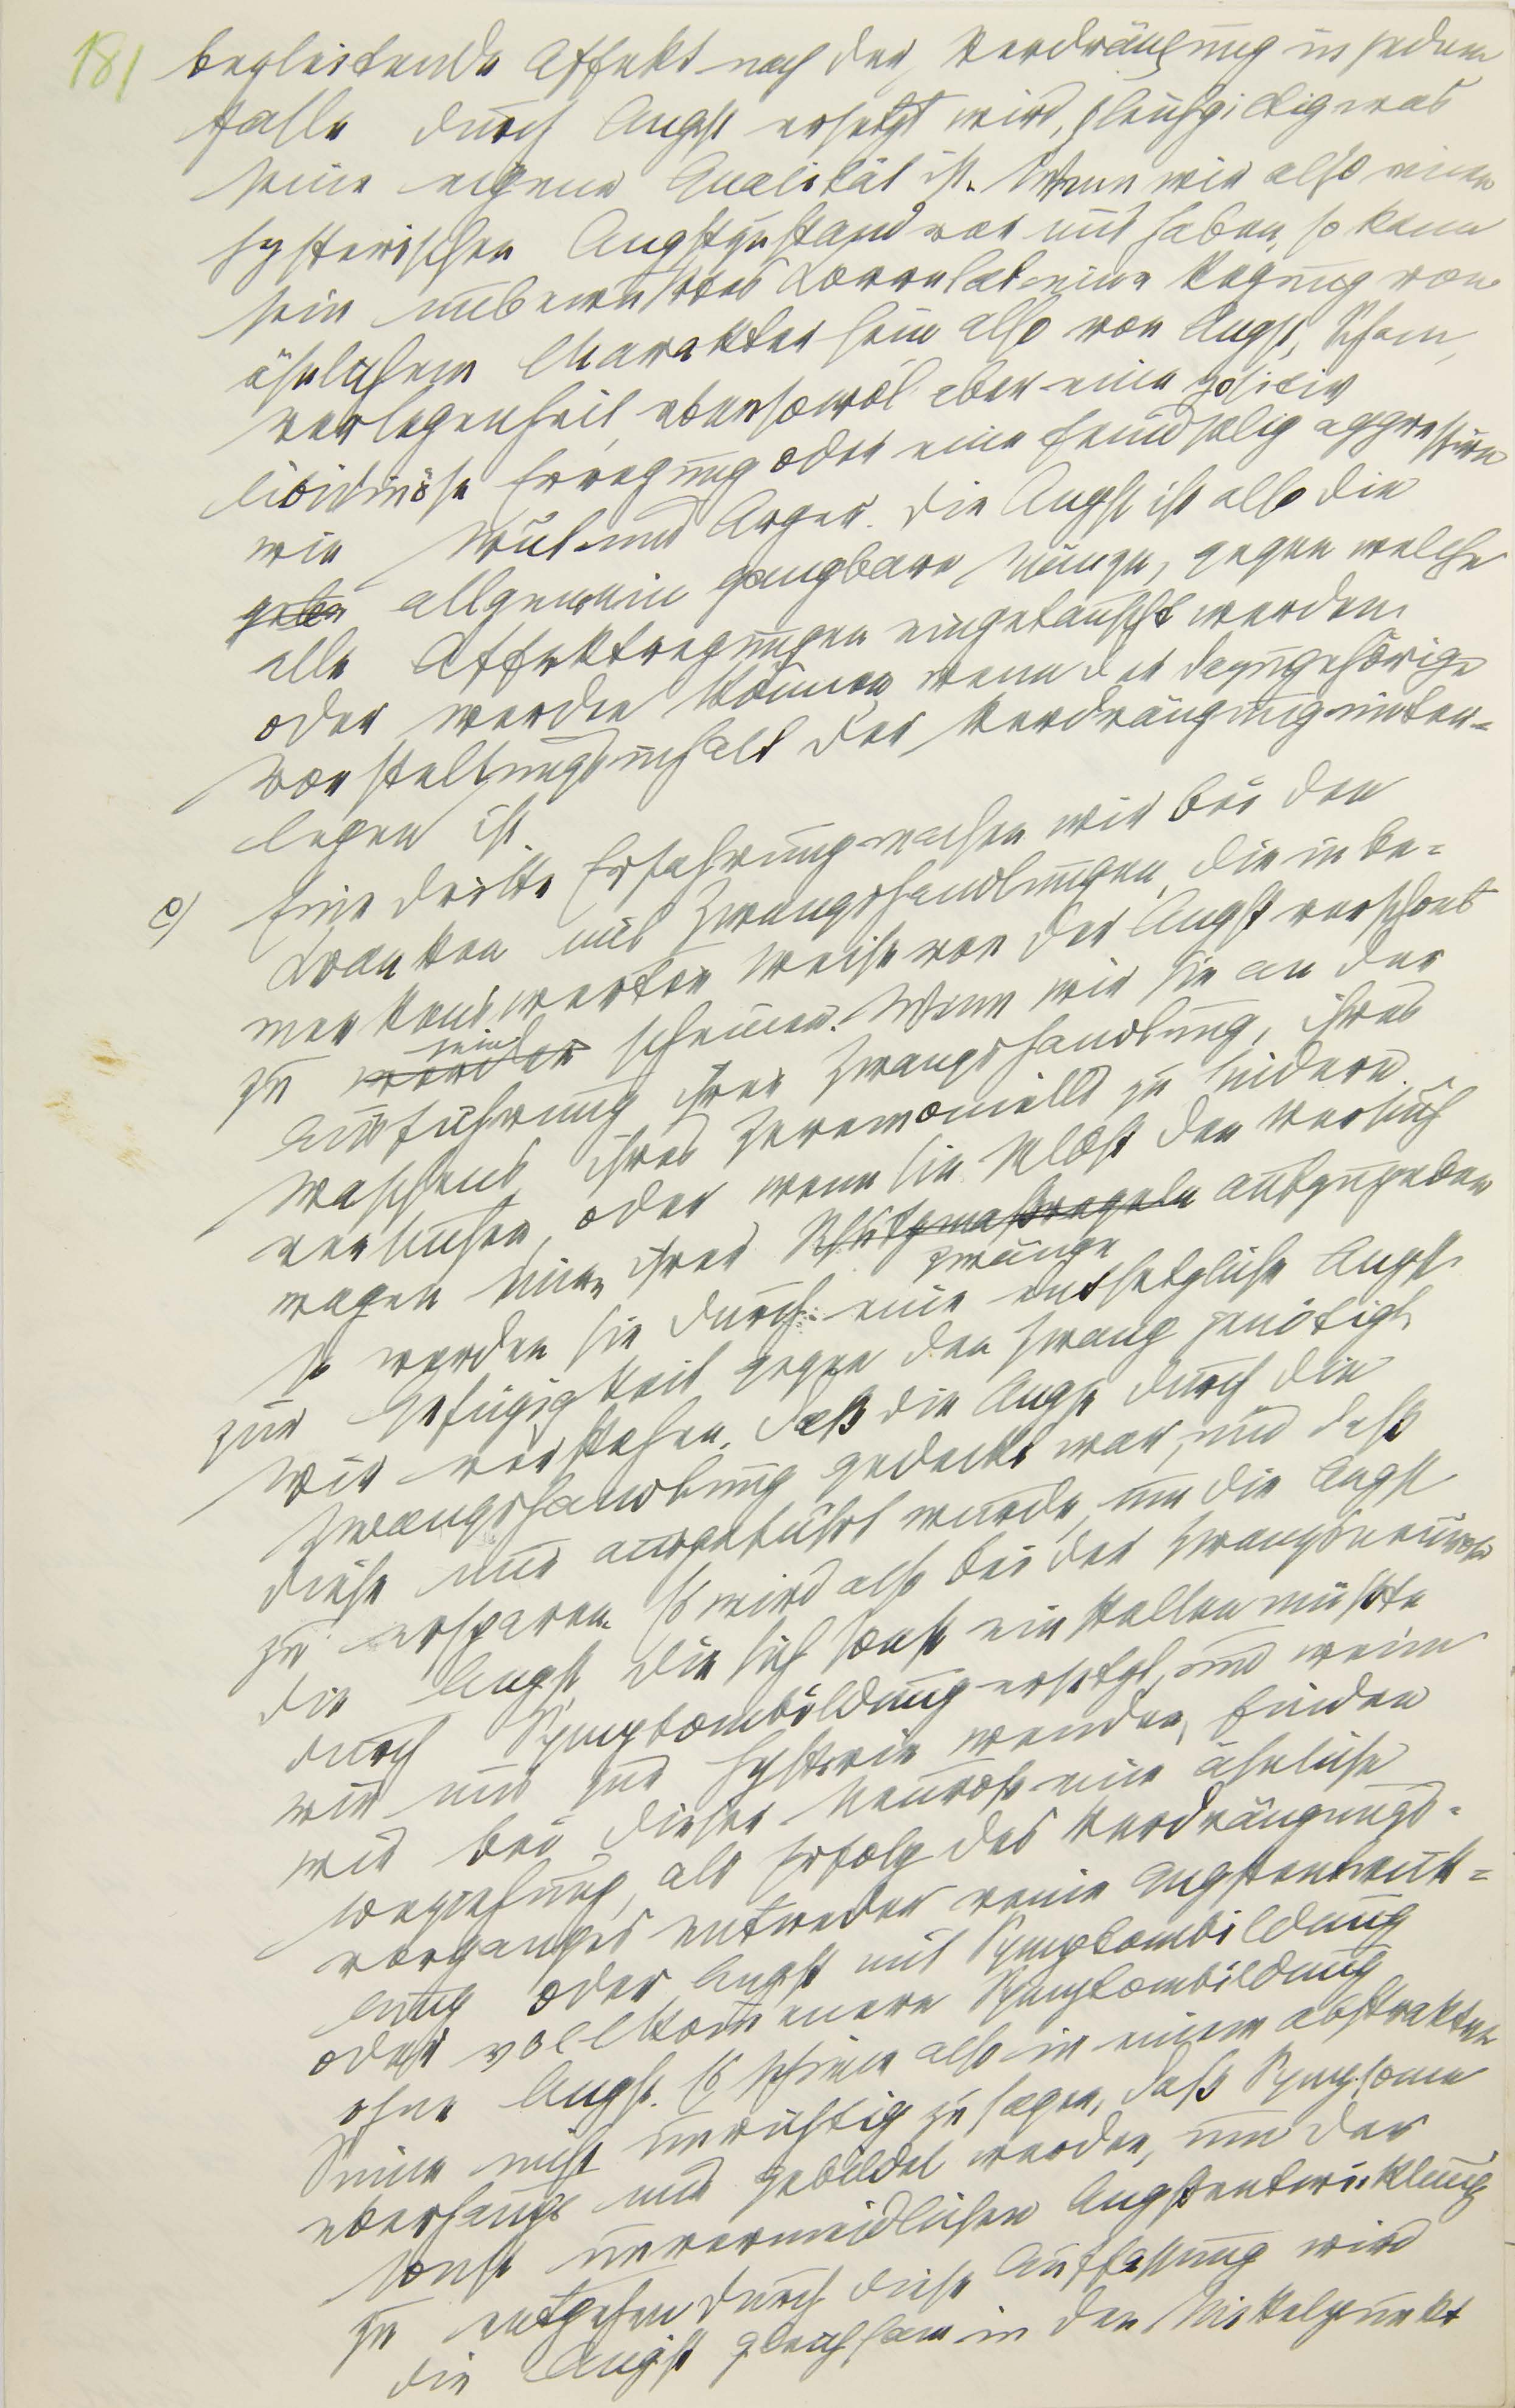 181 begleitende Affekt nach der Verdrängung in jedem
Falle durch Angst ersetzt wird, gleichgiltig was
seine eigene Qualität ist. Wenn wir also einen
hysterischen Angstzustand vor uns haben, so kann
sein unbewußtes Correlat eine Regung von
ähnlichem Charakter sein also von Angst, Scham,
Verlegenheit, ebensowol aber eine positiv
libidinöse Erregung oder eine feindselig aggressive
wie Wut und Ärger. Die Angst ist also die
allgemein gangbare Münze, gegen welche
alle Affektregungen eingetauscht werden
oder werden können, wenn der dazugehörige
Vorstellungsinhalt der Verdrängung unter-
legen ist.
c) Eine dritte Erfahrung machen wir bei den
Kranken mit Zwangshandlungen, die in be-
merkenswerter Weise von der Angst verschont
zu werden sein scheinen. Wenn wir sie an der
Ausführung ihrer Zwangshandlung, ihres
Waschens, ihres Zeremoniells zu hindern
versuchen, oder wenn sie selbst den Versuch
wagen einen ihrer Schutzmaßregeln aufzugeben
zwänge
so werden sie durch eine entsetzliche Angst
zur Gefügigkeit gegen den Zwang genötigt.
Wir verstehen, daß die Angst durch die
Zwangshandlung gedeckt war, und daß
diese nur ausgeführt wurde, um die Angst
zu ersparen. Es wird also bei der Zwangsneurose
die Angst, die sich sonst einstellen müßte
durch Symptombildung ersetzt, und wenn
wir uns zur Hysterie wenden, finden
wir bei dieser Neurose eine ähnliche
Beziehung, als Erfolg des Verdrängungs-
vorganges entweder reine Angstentwick-
lung oder Angst mit Symptombildung
oder vollkommenere Symptombildung
ohne Angst. Es schiene also in einem abstrakten
Sinne nicht unrichtig zu sagen, daß Symptome
überhaupt nur gebildet werden, um der
sonst unvermeidlichen Angstentwicklung
zu entgehen. Durch diese Auffassung wird
die Angst gleichsam in den Mittelpunkt